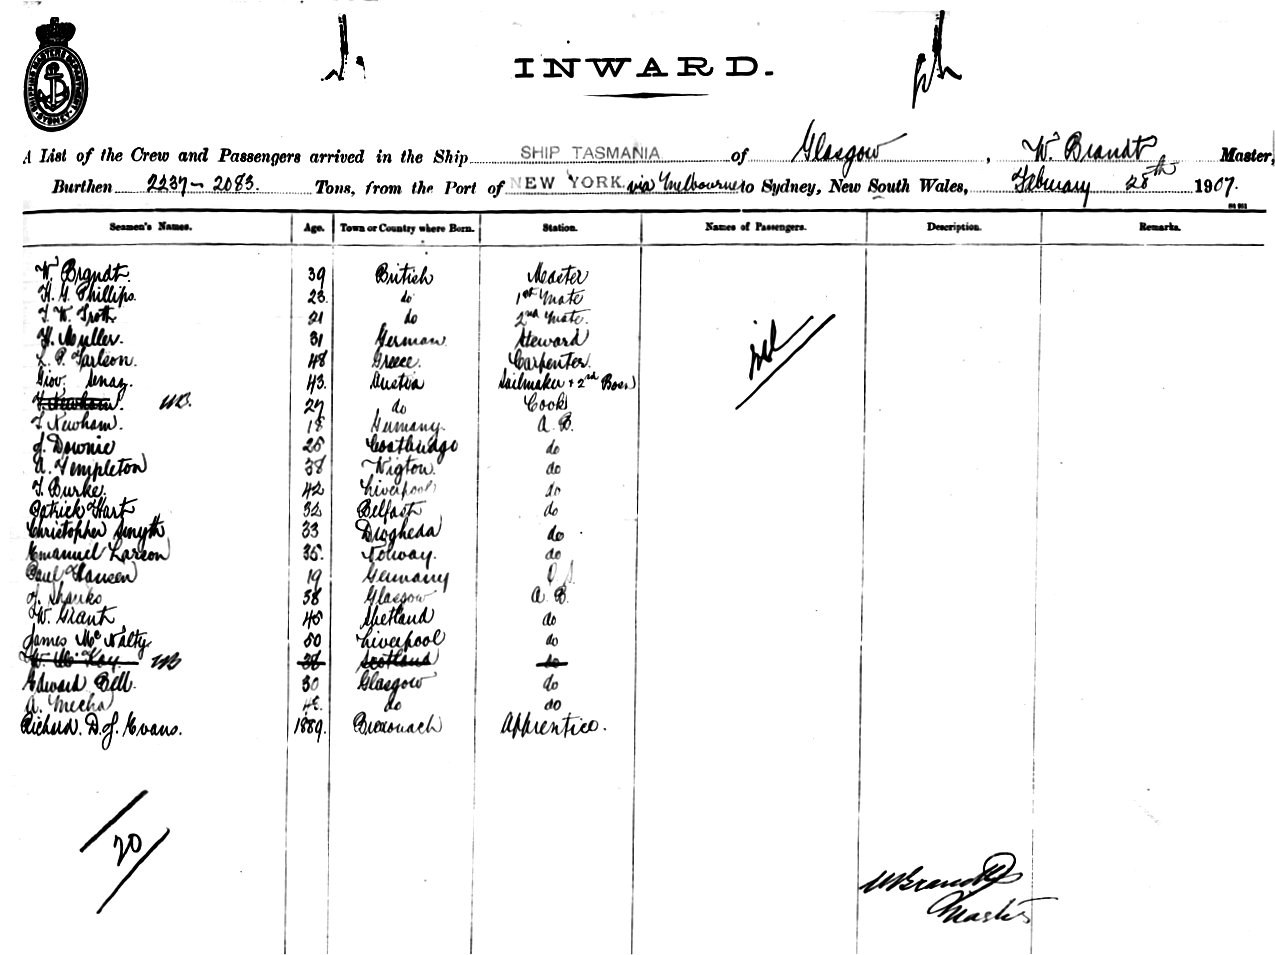 SHIPPING MASTERS DEPARTMENT SYDNEY
INWARD.
A List of the Crew and Passengers arrived in the Ship SHIP TASMANIA of Glasgow, W. Brandt Master,
Burthen 2237 - 2083. Tons, from the Port of NEW YORK via Melbourne to Sydney, New South Wales, February 28th 1907.
Seamen's Names. Age. Town or Country where Born. Station. Names of Passengers. Description. Remarks.
W. Brandt. 39 British Master
H. G. Phillips. 23 do 1st Mate
T. W. Trott 21 do 2nd Mate.
H. Muller. 31 German Steward
48 Greece. Carpenter.
Giov. 43. Austria Sailmaker & 2nd Bosn
F. Newham. 27 do Cook
F. Newham. 18 Germany. A.B.
J. Downie 25 Coatbridge do
A. Templeton 38 Wigton. do
T. Burke. 42 Liverpool do
Patrick Hart 32 Belfast do
Christopher Smyth 33 Drogheda do
Emanuel Larson 35. Norway. do
Paul Hansen 19 Germany O.S.
J. Shanks 38 Glasgow A.B.
W. Grant 45 Shetland do
James McNalty 50 Liverpool do
W. McKay 38 Scotland do
Edward Bell. 30 Glasgow do
A. 48. do do
Richard. D. J. Evans. 1889. Apprentice.
nil
20
W Brandt
Master